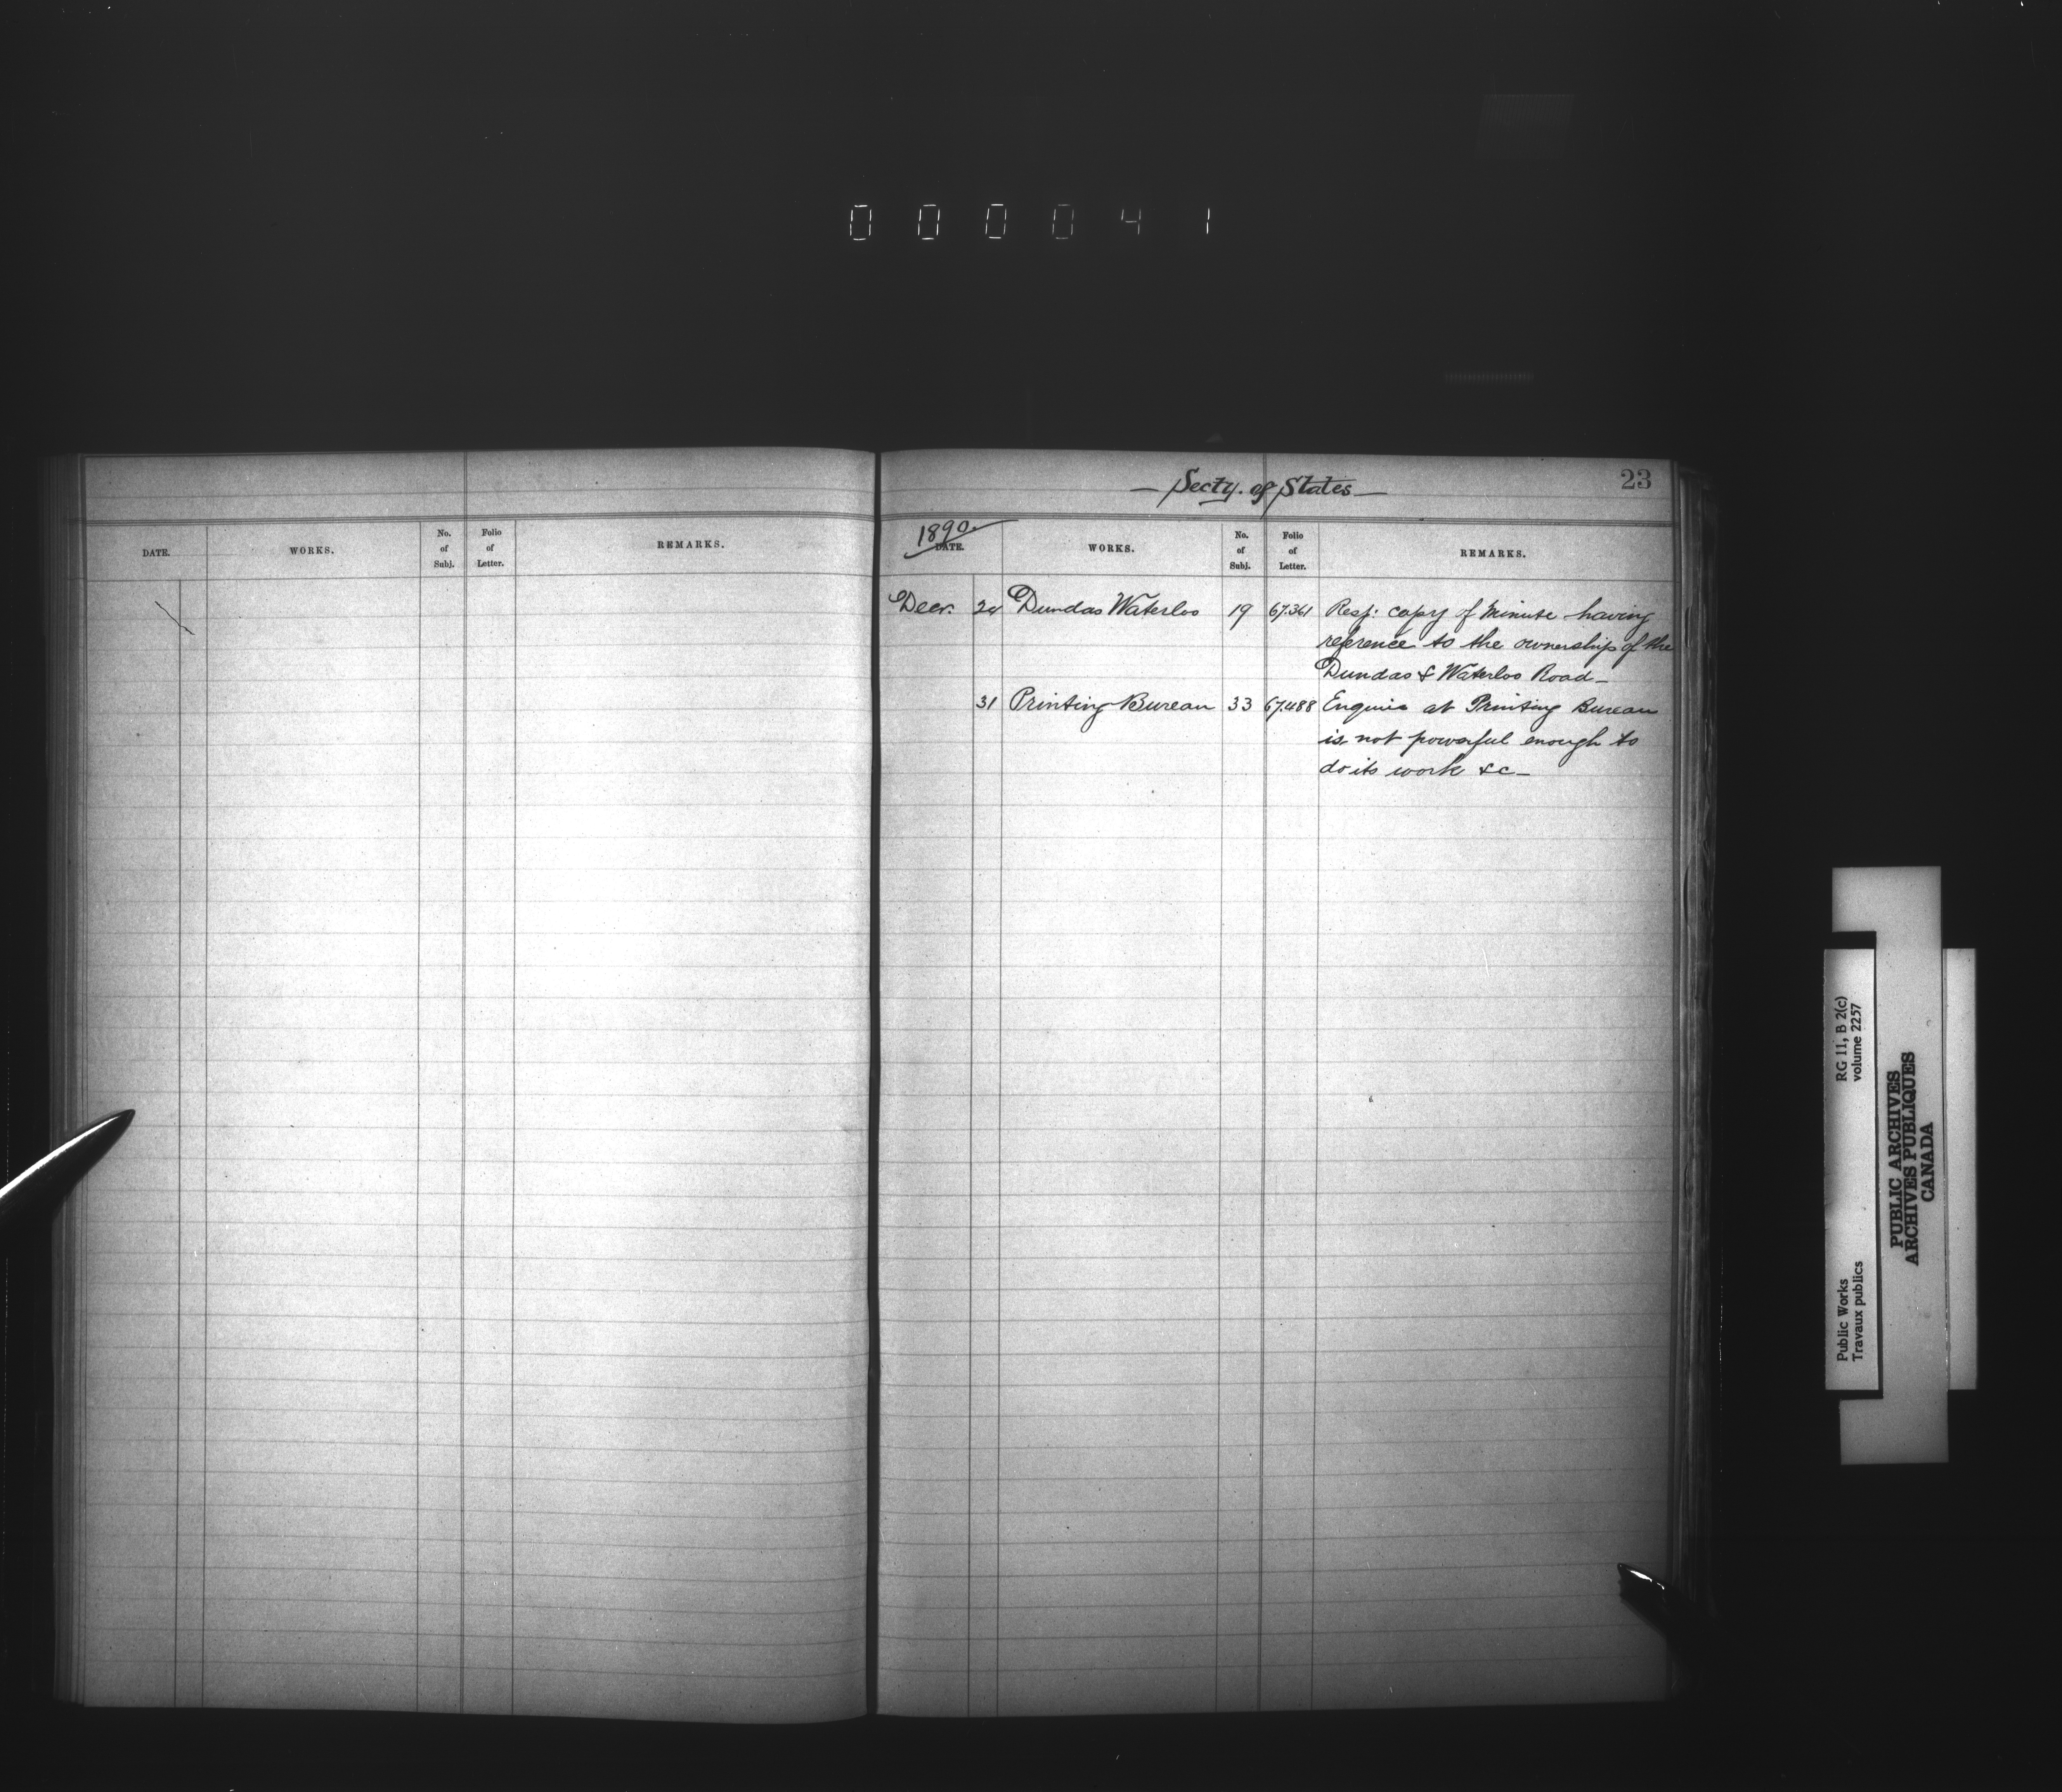 000041
— Secty. of States —
23
DATE. WORKS. No. of Subj. Folio of Letter. REMARKS.
1890.
DATE. WORKS. No. of Subj. Folio of Letter. REMARKS.
Decr. Dundas Waterloo 19 67.361 Resp: copy of Minute having
reference to the ownership of the
Dundas & Waterloo Road —
31 Printing Bureau 33 67.488 Engine at Printing Bureau
is not powerful enough to
do its work &c —
RG 11, B 2(c)
volume 2257
Public Works
Travaux publics
PUBLIC ARCHIVES
ARCHIVES PUBLIQUES
CANADA